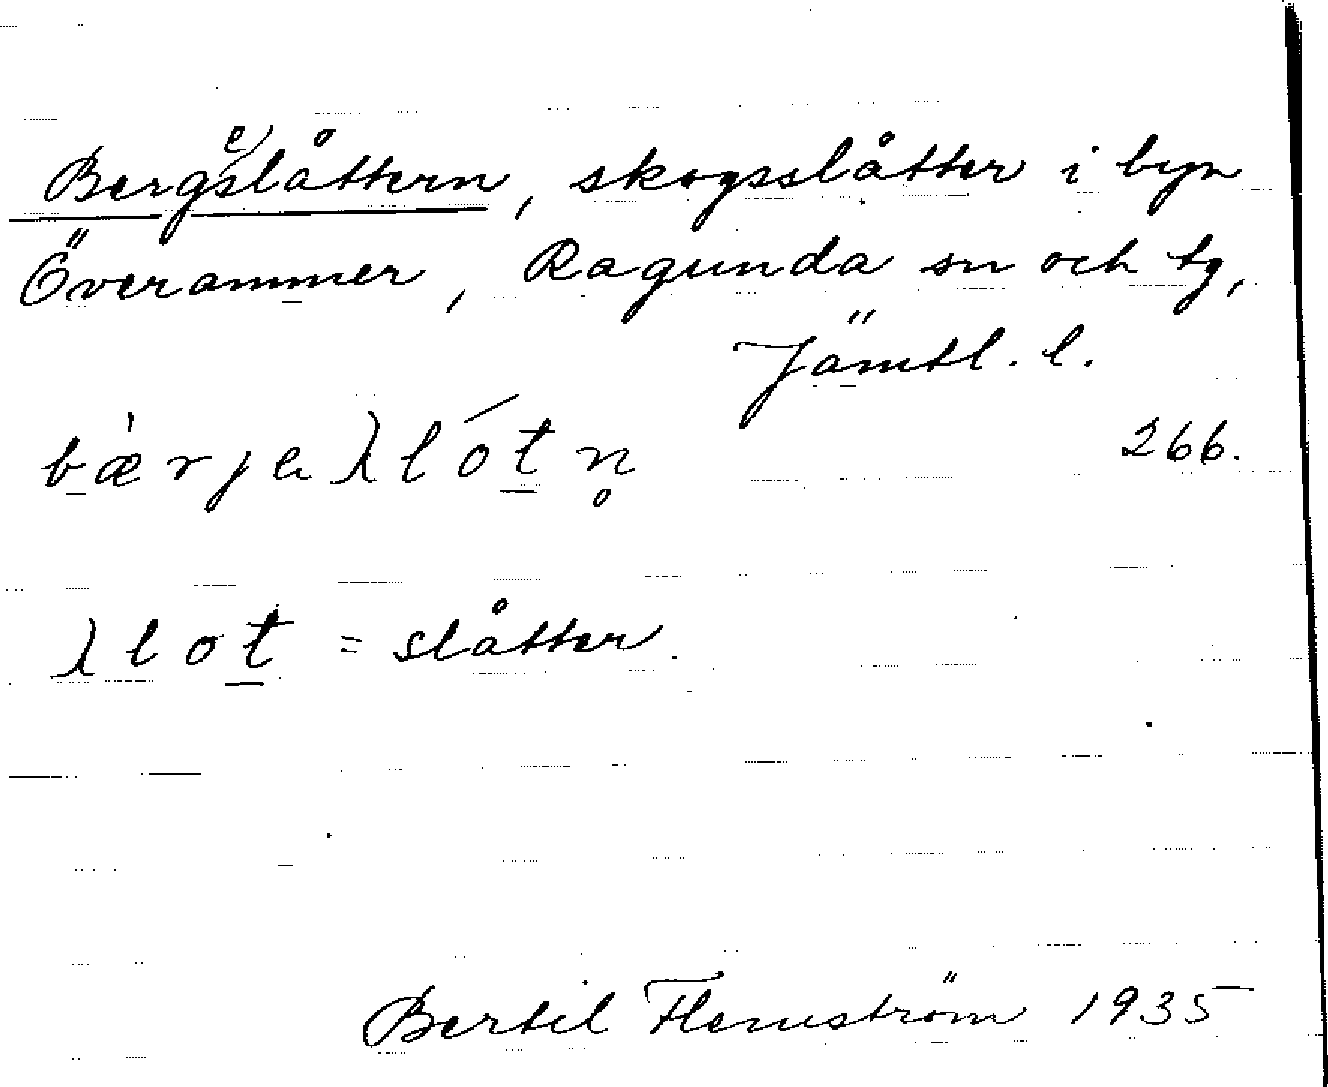 Bergeslåttern, skogsslåtter i byn
Överammer, Ragunda sn och tg,
Jämtl. l.
bæ̀rjaλlótn̥ 266.
λlot = slåtter.
Bertil Flemström 1935